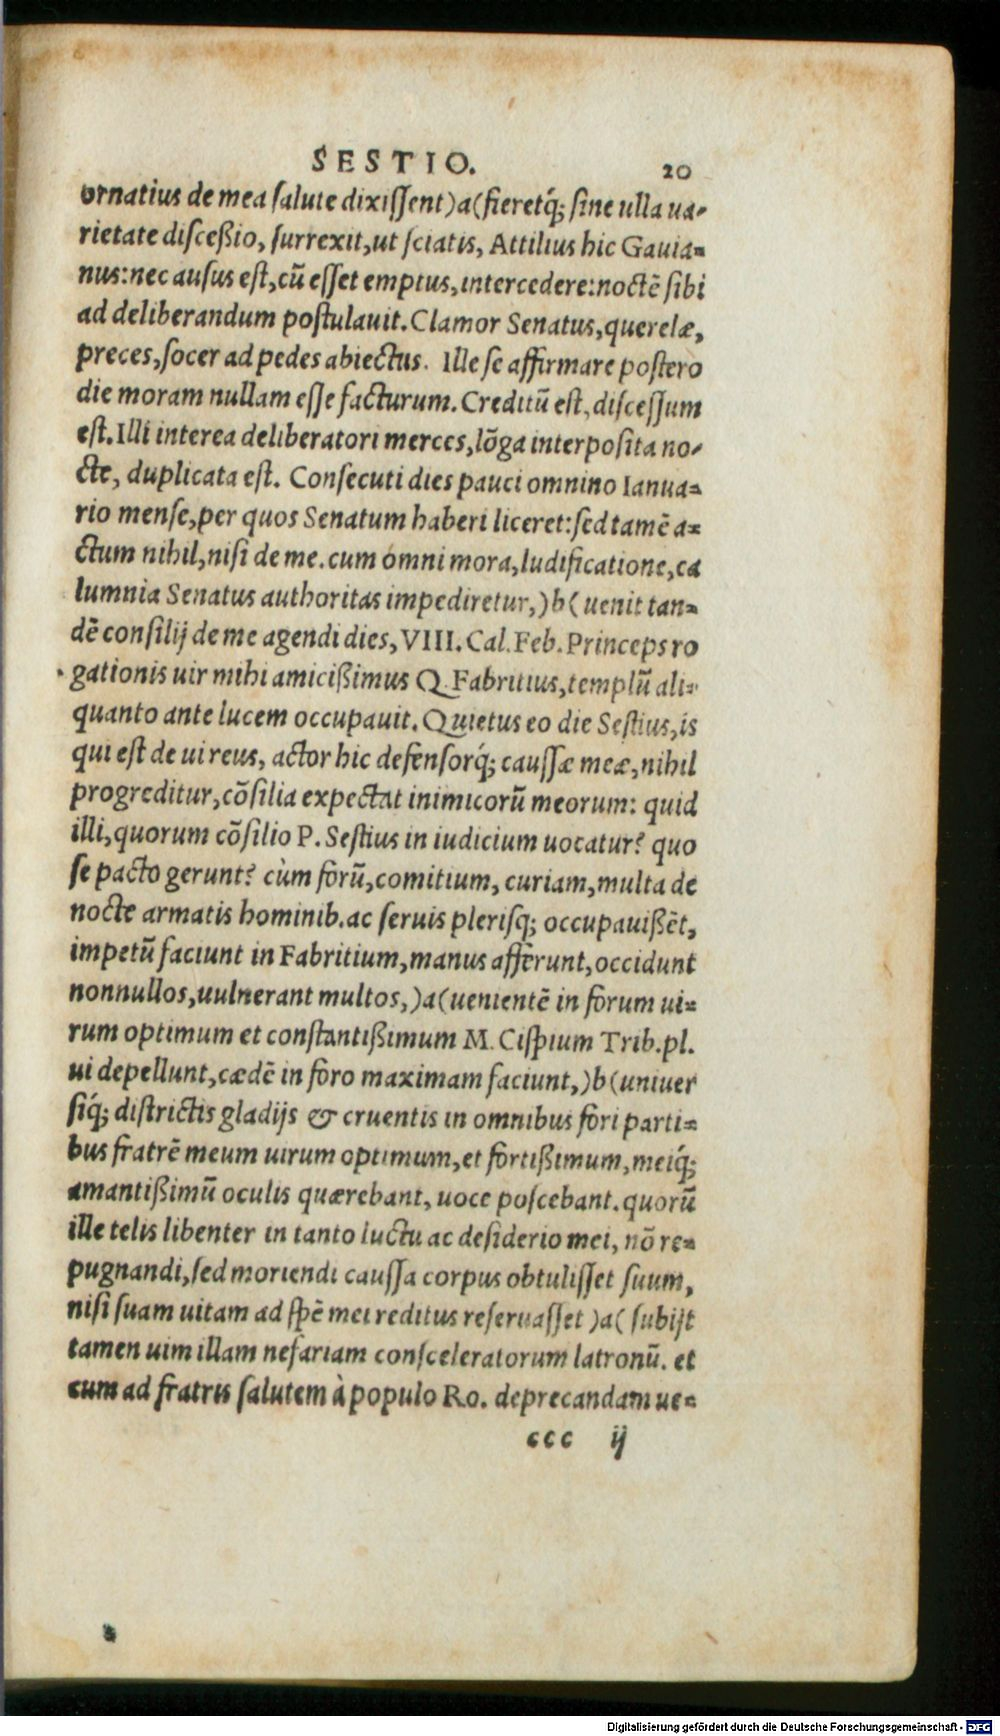 SESTIO. 20
ornatius de mea salute dixissent)a(fieretq́; sine ulla ua-
rietate disceßio, surrexit, ut sciatis, Attilius hic Gauia-
nus: nec ausus est, cū esset emptus, intercedere: noctē sibi
ad deliberandum postulauit. Clamor Senatus, querelæ,
preces, socer ad pedes abiectus. Ille se affirmare postero
die moram nullam esse facturum. Creditū est, discessum
est. Illi interea deliberatori merces, lōga interposita no-
cte, duplicata est. Consecuti dies pauci omnino Ianua-
rio mense, per quos Senatum haberi liceret: sed tamē a-
ctum nihil, nisi de me. cum omni mora, ludificatione, ca
lumnia Senatus authoritas impediretur,)b( uenit tan-
dē consilij de me agendi dies, VIII. Cal. Feb. Princeps ro
gationis uir mihi amicißimus Q. Fabritius, templū ali-
quanto ante lucem occupauit. Quietus eo die Sestius, is
qui est de ui reus, actor hic defensorq́; caussæ meæ, nihil
progreditur, cōsilia expectat inimicorū meorum: quid
illi, quorum cōsilio P. Sestius in iudicium uocatur? quo
se pacto gerunt? cùm forū, comitium, curiam, multa de
nocte armatis hominib. ac seruis plerisq; occupauißēt,
impetū faciunt in Fabritium, manus afferunt, occidunt
nonnullos, uulnerant multos,)a(uenientē in forum ui-
rum optimum et constantißimum M. Cispium Trib. pl.
ui depellunt, cædē in foro maximam faciunt,)b(uniuer
siq́; districtis gladijs & cruentis in omnibus fori parti-
bus fratrē meum uirum optimum, et fortißimum, meiq́;
amantißimū oculis quærebant, uoce poscebant. quorū
ille telis libenter in tanto luctu ac desiderio mei, nō re-
pugnandi, sed moriendi caussa corpus obtulisset suum,
nisi suam uitam ad spē mei reditus reseruasset )a( subijt
tamen uim illam nefariam consceleratorum latronū. et
cum ad fratris salutem à populo Ro. deprecandam ue-
ccc ij
Digitalisierung gefördert durch die Deutsche Forschungsgemeinschaft - DFG